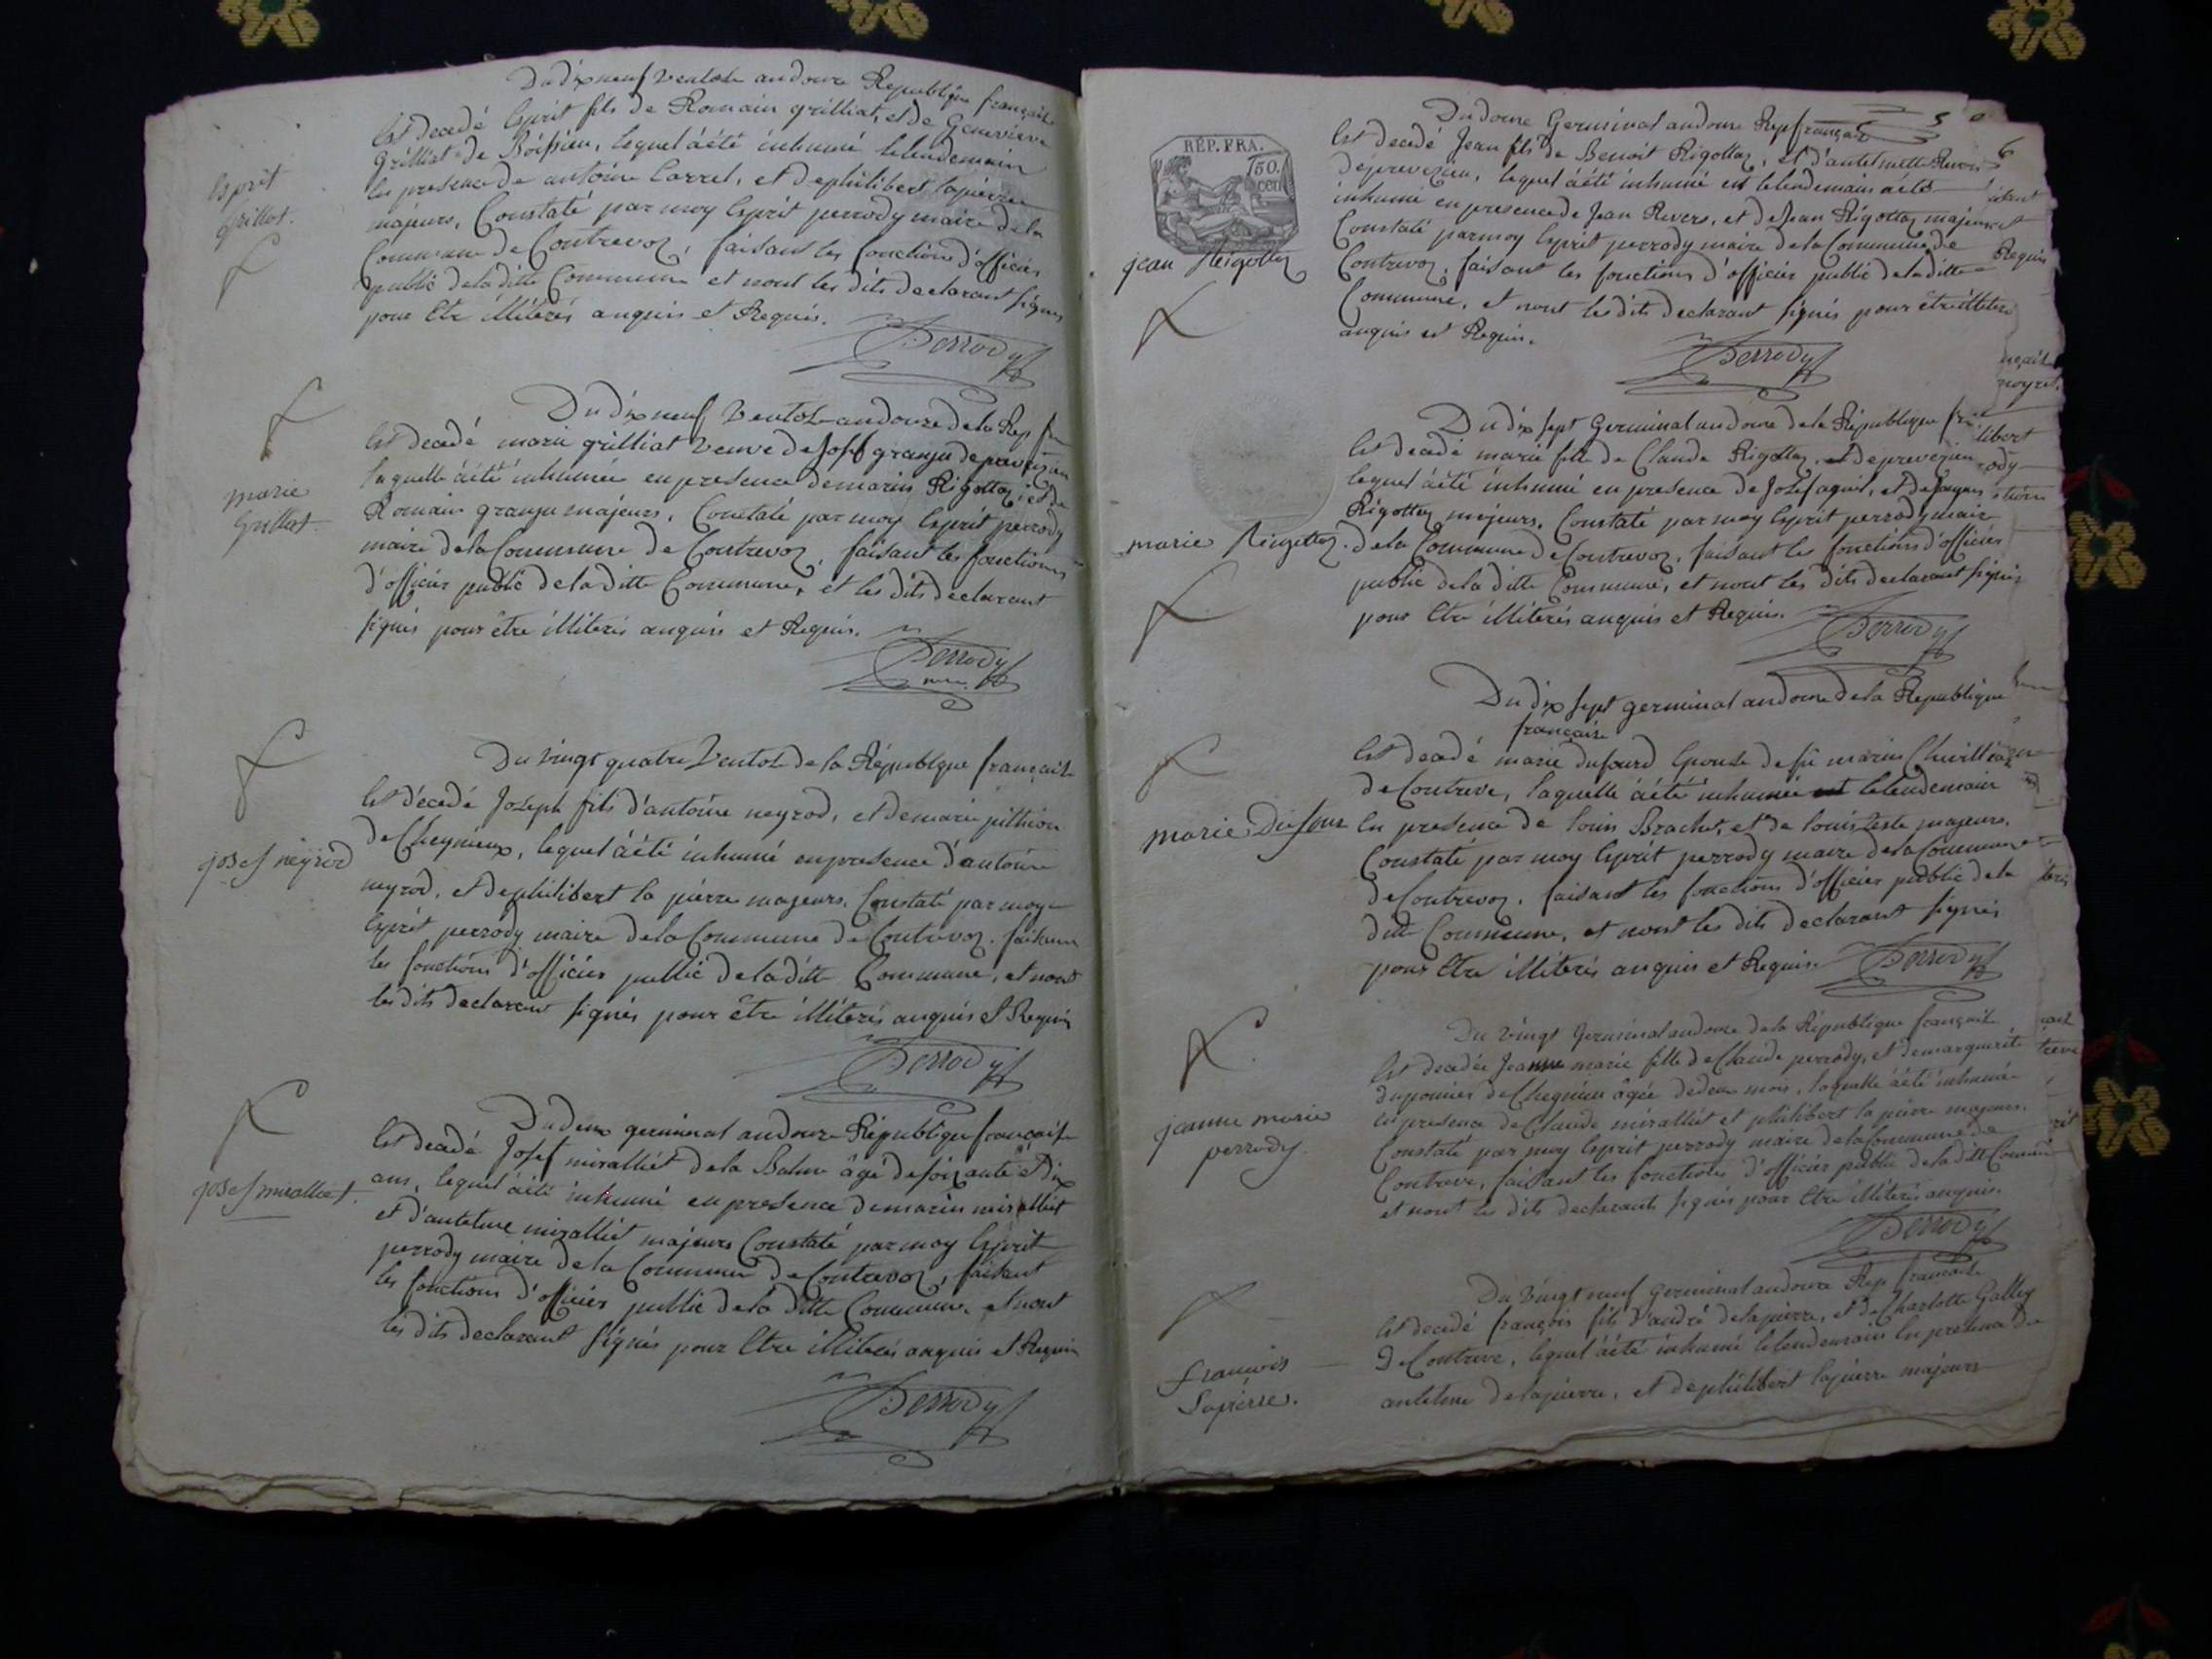 Du dix neuf Ventose an douze Republique française
Est decedé Esprit fils de Romain grilliat, et de Genevieve
Grilliat de Boissieu, lequel a été inhumé le lendemain
En presence de antoine Carrel, et de philibert lapierre
majeurs, Constaté par moy Esprit perrody maire dela
Commune de Contrevoz, faisant les fonctions d'officier
public dela ditte Commune et nont les dits declarant signés
pour Etre illiterés anquis et Requis.
Esprit
Grillat.
Perrody
Du dix neuf Ventose an douze de la Rep fr
Est decedé marie grilliat veuve de Josf granju de preveysieu
laquelle a été inhumée en presence de marin Rigottaz, et de
Romain granju majeurs, Constaté par moy Esprit perrody
maire dela Commune de Contrevoz, faisant les fonctions
d'officier public dela ditte Commune, et les dits declarant
signés pour être illiterés anquis et Requis.
marie
Grillat.
Perrody
Du vingt quatre Ventose de la République française
Est décedé Joseph fils d'antoine neyrod, et de marie pithion
de Cheynieux, lequel a été inhumé en presence d'antoine
neyrod, et de philibert la pierre majeurs. Constaté par moy
Esprit perrody maire dela Commune de Contrevoz. faisant
les fonctions d'officier public dela ditte Commune, et nont
les dits declarant signés pour être illiterés anquis et Requis
josef neyrod
Perrody
Du deux germinal an douze République française
Est decedé Josef miralliet dela Balme âgé de soixante et dix
ans, lequel a été inhumé en presence de marin miralliet
et d'antelme miralliet majeurs Constaté par moy Esprit
perrody maire dela Commune de Contrevoz, faisant
les fonctions d'officier public dela ditte Commune, et nont
les dits declarant signés pour Etre illiterés anquis et Requis
josef miralliet.
Perrody
RÉP. FRA.
50.
cen
Du douze Germinal an douze Rep française
Est decedé Jean fils de Benoit Rigottaz, et d'antelmette Revers
de preveysieu, lequel a été inhumé est le lendemain a été
inhumé en presence de Jean Revers, et de Jean Rigottaz majeurs
Constaté par moy Esprit perrody maire dela Commune de
Contrevoz, faisant les fonctions d'officier public dela ditte
Commune, et nont les dits declarant signés pour être illiteré
anquis et Requis.
jean Rigottaz
Perrody
Du dix sept Germinal an douze dela République fr
Est decedé marie fille de Claude Rigottaz, et de preveysieu
lequel a été inhumé en presence de Josef aguil, et de Jaques
Rigottaz majeurs, Constaté par moy Esprit perrody maire
dela Commune de Contrevoz, faisant les fonctions d'officier
public dela ditte Commune, et nont les dits declarant signés
pour Etre illiterés anquis et Requis.
marie Rigottaz.
Perrody
Du dix sept germinal an douze dela République
française
Est decedé marie dufourd Epouse de fû marin Chevillé
de Contreve, laquelle a été inhumée est le lendemain
En presence de louis Brachet, et de louis Teste majeurs.
Constaté par moy Esprit perrody maire dela Commune
de Contrevoz, faisant les fonctions d'officier public de la
ditte Commune, et nont les dits declarant signés
pour Etre illiterés anquis et Requis.
marie Dufour
Perrody
Du vingt Germinal an douze dela République française
Est decedée Jeanne marie fille de Claude perrody, et de marguerite
duponnier de Chegnieu âgée de deux mois, laquelle a été inhumée
en presence de Claude miralliet et philibert la pierre majeurs.
Constaté par moy Esprit perrody maire dela Commune de
Contreve, faisant les fonctions d'officier public dela ditte Commune
et nont les dits declarants signés pour Etre illiterés anquis.
jeanne marie
perrody.
Perrody
Du vingt neuf Germinal an douze Rep française
Est decedé françois fils d'andré delapierre, et de Charlotte Galley
de Contreve, lequel a été inhumé le lendemain En presence de
antelme delapierre, et de philibert lapierre majeurs
francois
Lapierre.